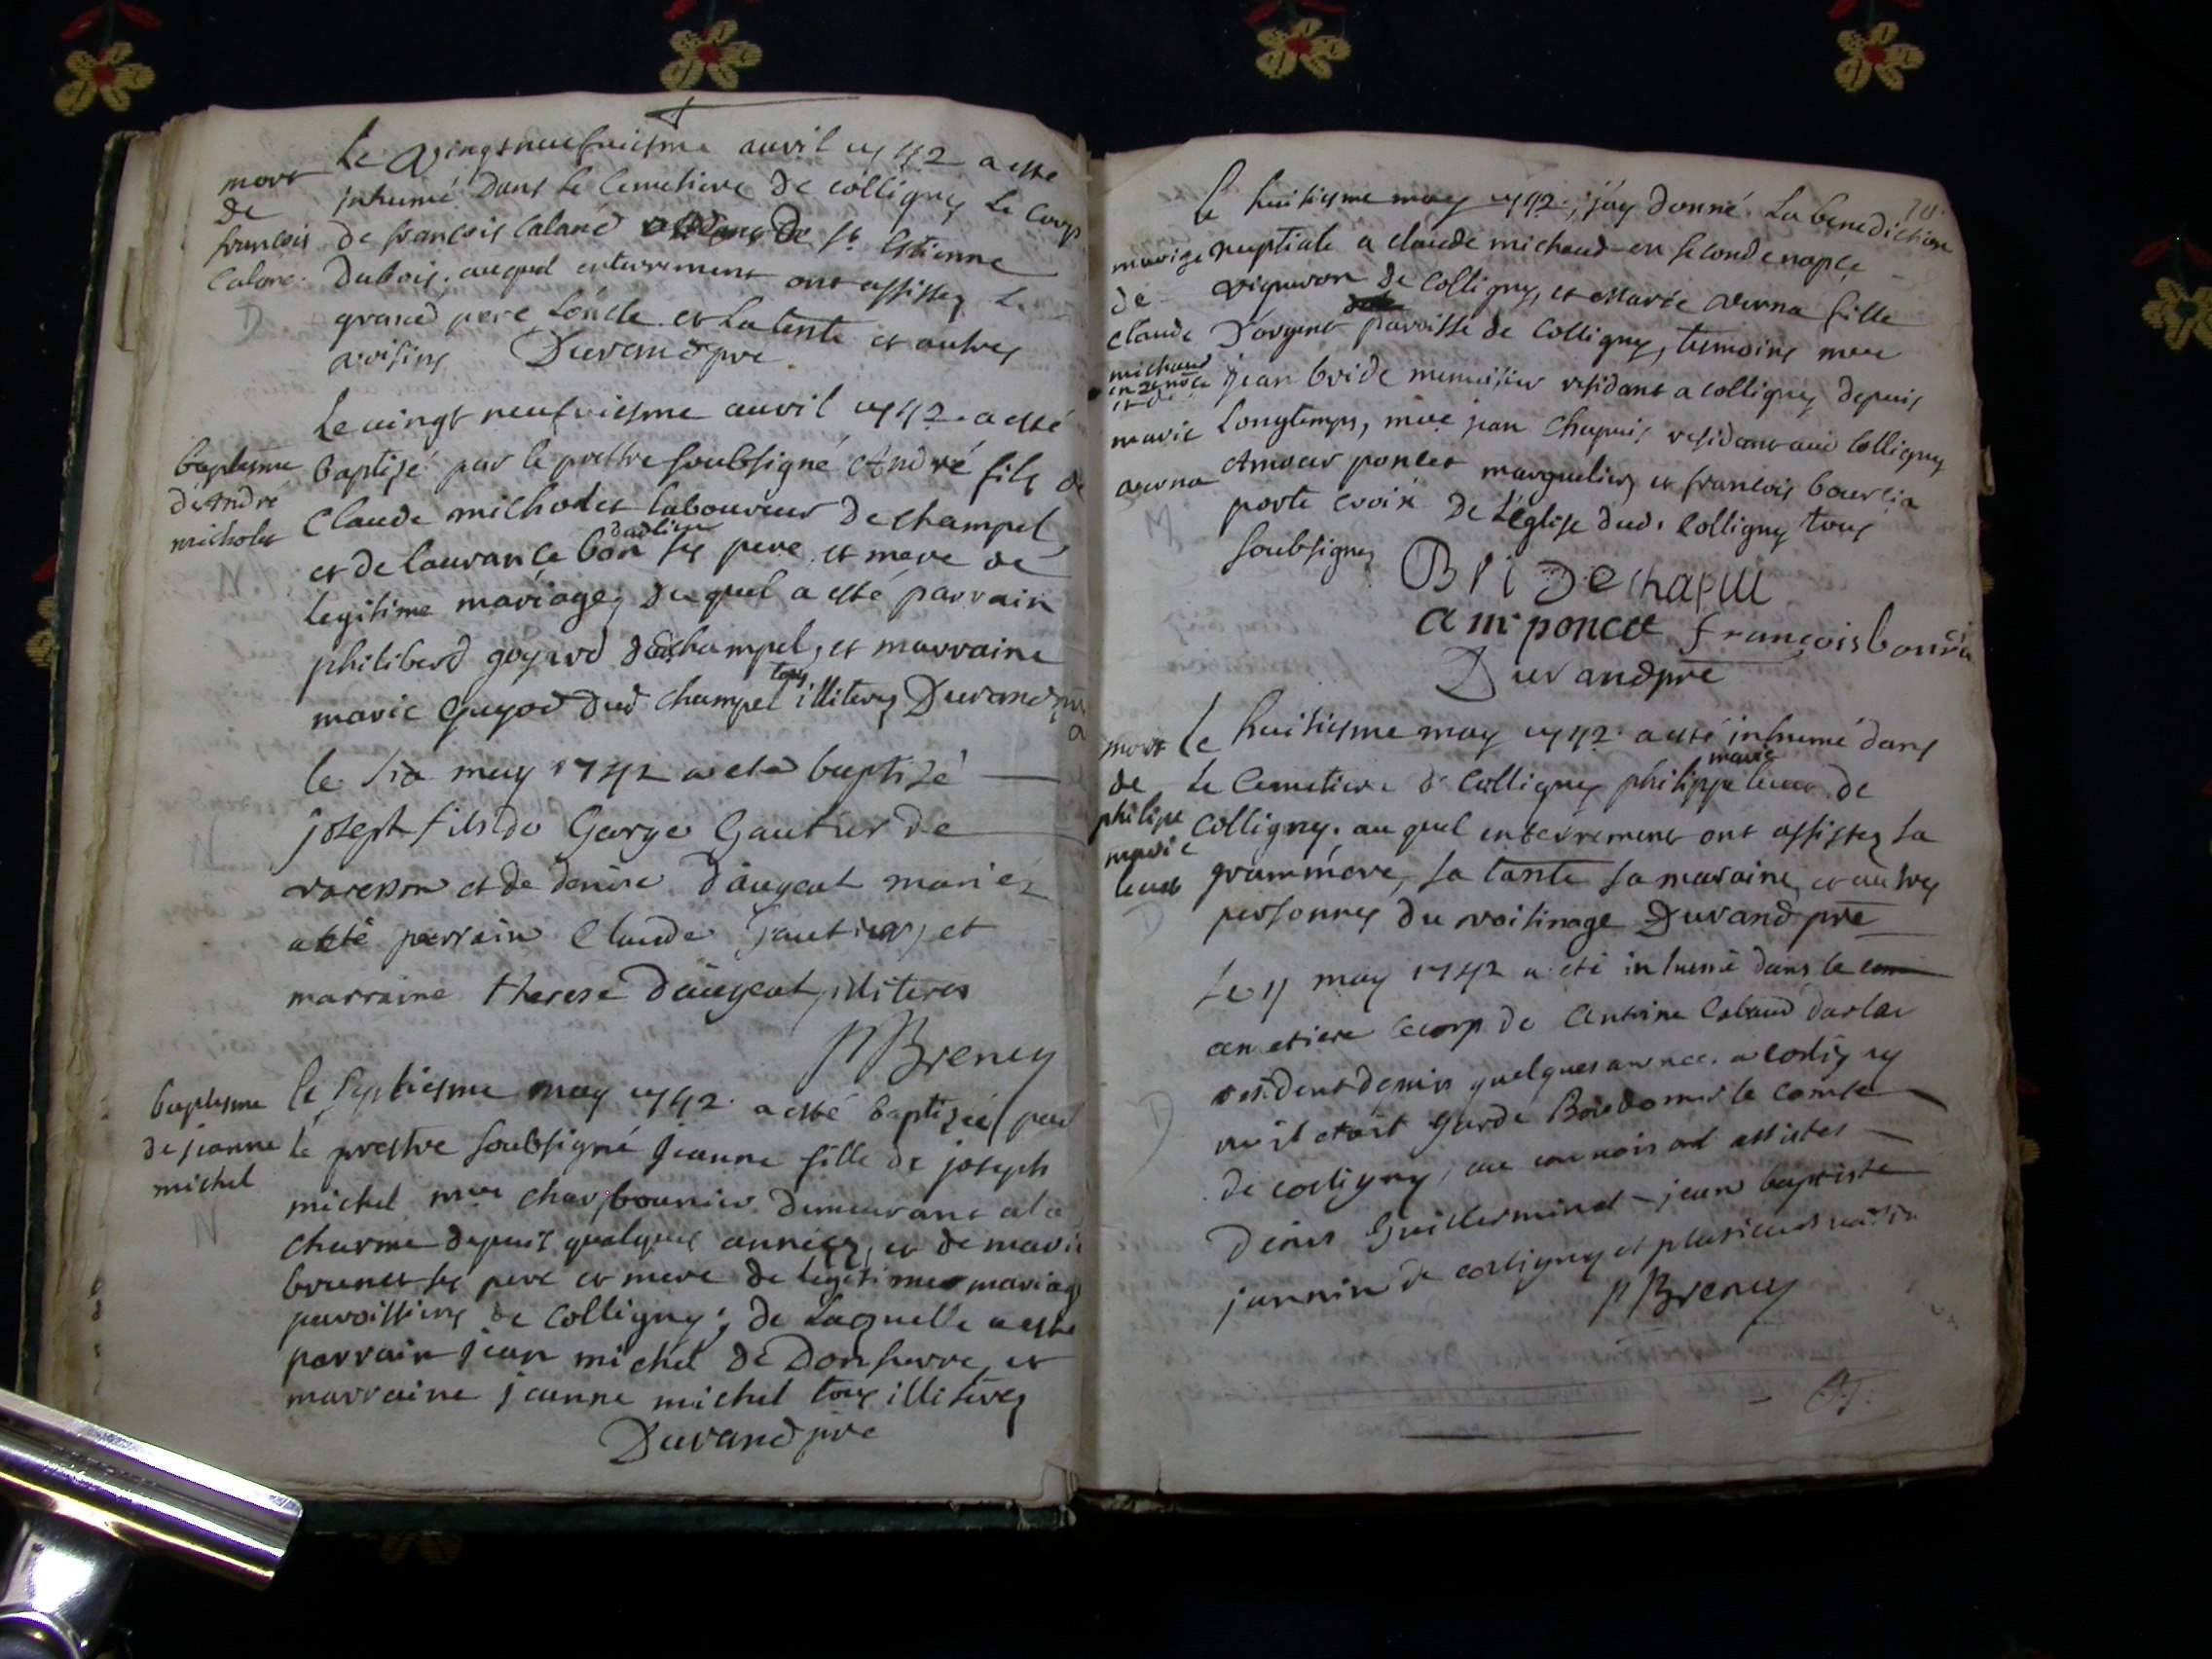 mort
de
francois
Calane.
D
Le vingtneufviesme auvril 1742 a esté
inhumé dans le Cemetiere de colligny Le corp
de francois Calané de St Estienne
Dubois. auquel enterrement ont assistez Le
grand pere L'oncle et La tente et autres
voisins Durand pre
baptesme
de André
micholet
N
Le vingt neufviesme auvril 1742. a esté
baptizé par le prestre soubsigné André fils de
Claude micholet laboureur de champel
et de laurance bon dadlin ses pere et mere de
legitime mariage, duquel a esté parrain
philiberd goyard du champel, et marraine
marie Guyod dud champel tous illiteres Durand pre
le six may 1742 a eté baptisé
joseph fils de George Gautier de
et de denise daugeat mariéz
a eté parrain Claude Gautier, et
marraine therese daugeat, illiteres
P Breney
baptesme
de jeanne
michel
N
le septiesme may 1742. a esté baptizée par
le prestre soubsigné jeanne fille de joseph
michel mre charbounier demeurant a la
charme depuis quelques années, et de marie
brunet ses pere et mere de legitime mariage
paroissiens de Colligny; de Laquelle a esté
parrain jean michel de Donsurre, et
marraine jeanne michel tous illiteres
Durand pre
10.
mariage
de
Claude
michaud
en 2e nôce
et de
marie
verna
M
le huitiesme may 1742., j'ay donné La benediction
nuptiale a claude michaud en seconde nopce
vigneron de Colligny, et Marie verna fille
D'argent paroisse de Colligny, temoins mre
jean bride menuisier residant a colligny depuis
Longtemps, mre jean Chapuis residant aud Colligny
Amour poncet marguelier et francois bourcia
porte croix de L'église dud. Colligny tous
soubsignez
Bri De chapui
am poncet françois bourcia
Durand pre
mort
de
philipe
marie
D
le huitiesme may 1742. a esté inhumé dans
Le Cemetiere de Colligny philippe marie de
Colligny. au quel enterrement ont assistez sa
grammere, sa tante sa maraine, et autres
personnes du voisinage Durand pre
D
Le 11 may 1742 a eté inhumé dans le cem
cemetiere le corp de Antoine Cabaud
resident depuis quelques année. a coligny
ou il etoit garde Bois de mr le comte
de coligny, au convois ont assistes
Denis Guillerminet jean baptiste
jannin de coligny et plusieurs voisin
P Breney